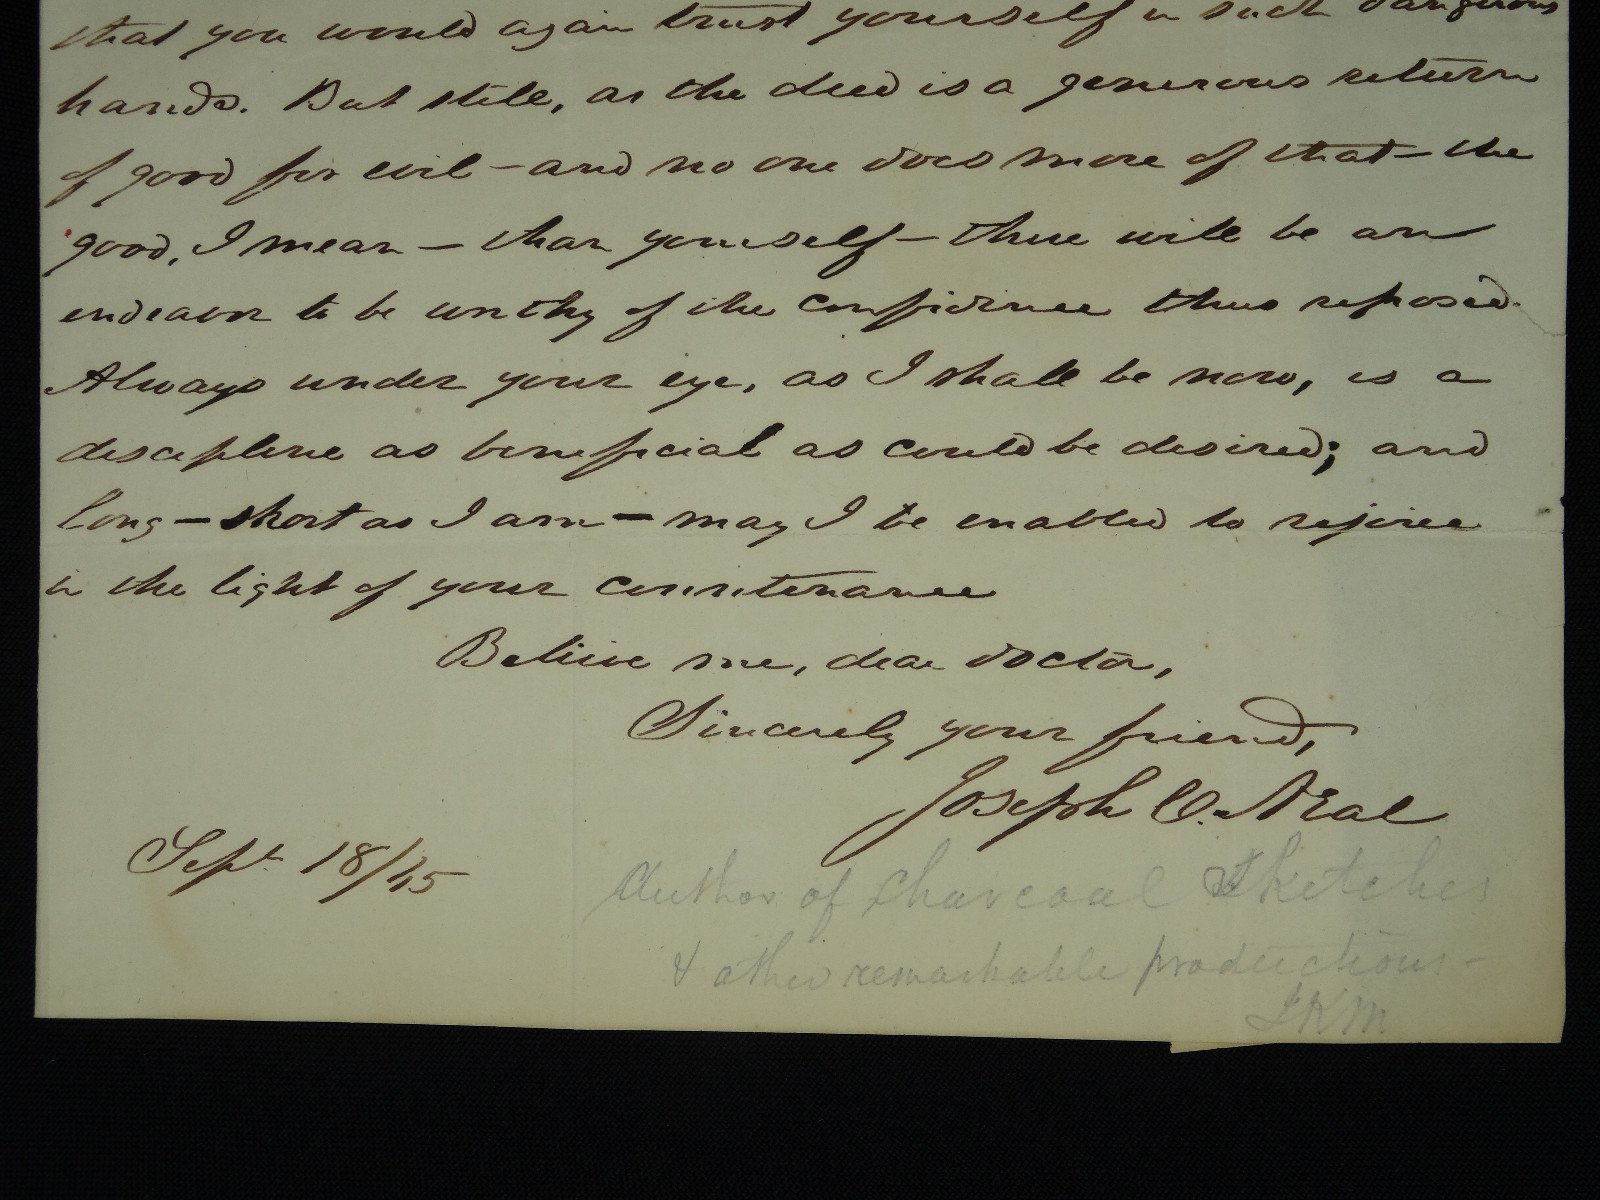 that you would again trust yourself in such dangerous
hands. But still, as the deed is a generous return
of good for evil – and no one does more of that – the
good, I mean – than yourself – there will be an
endeavor to be worthy of the confidence thus reposed.
Always under your eye, as I shall be now, is a
discipline as beneficial as could be desired; and
long – short as I am – may I be enabled to rejoice
in the light of your countenance
Believe me, dear doctor,
Sincerely your friend,
Joseph C. Neal
Sept. 18/45
Author of Charcoal Sketches
& other remarkable productions –
JKM